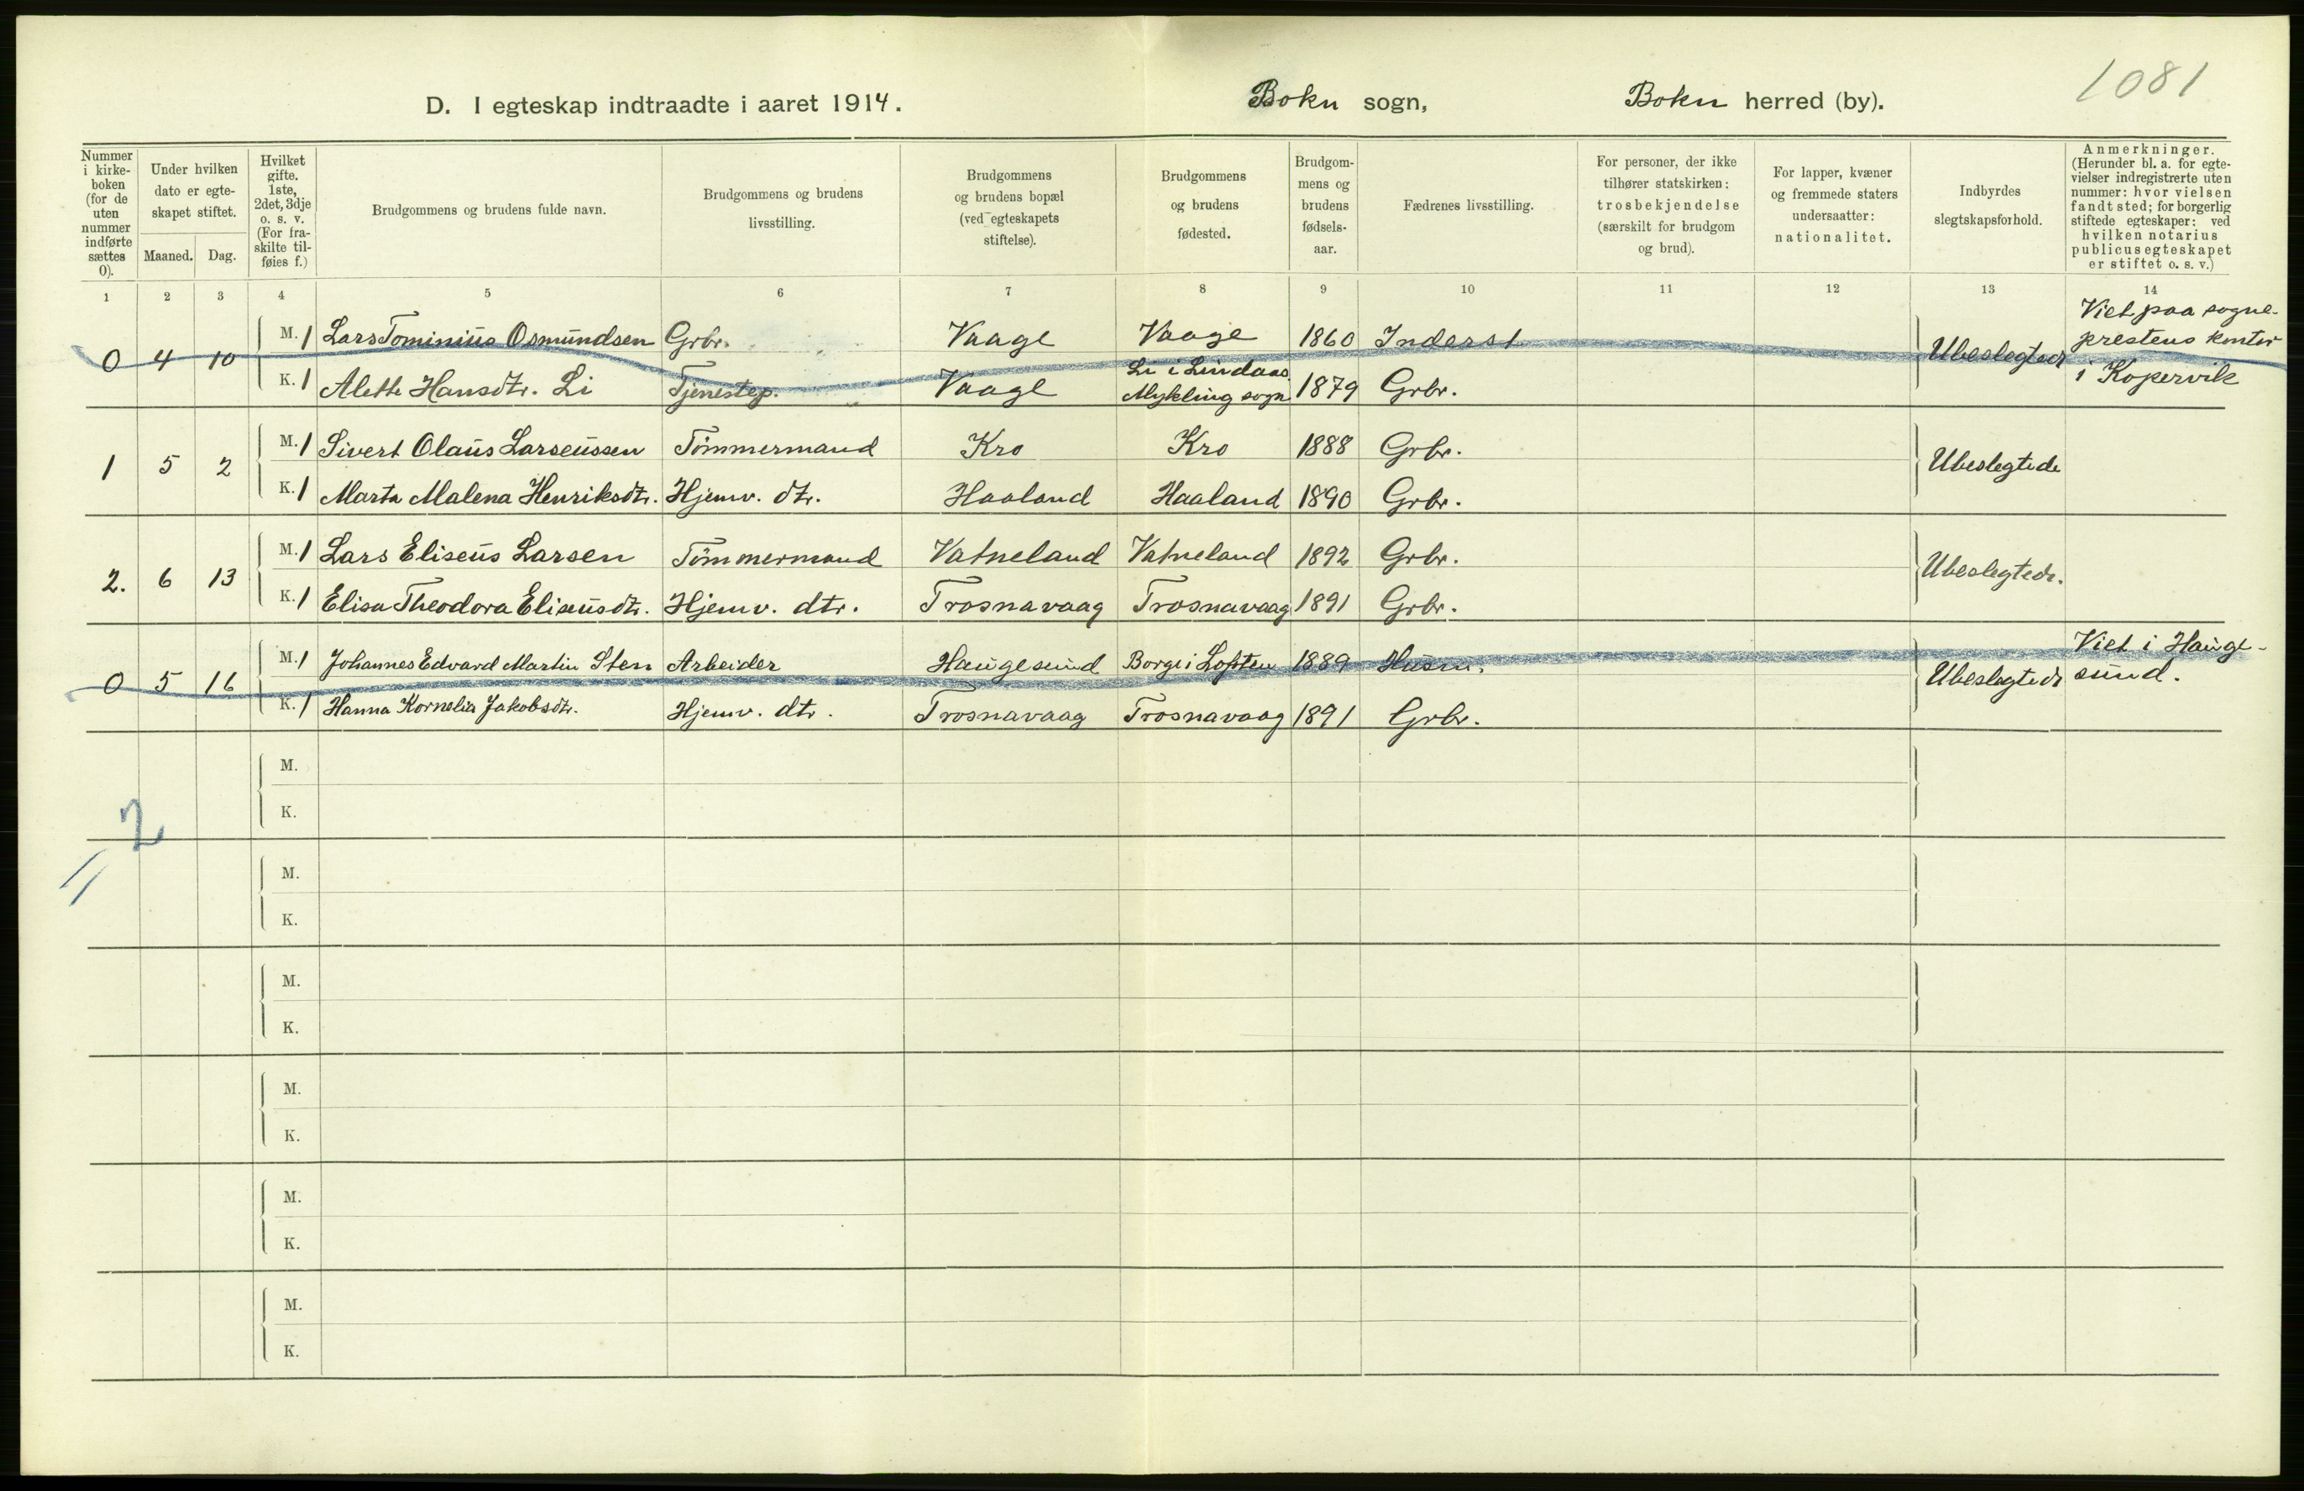 1081
D. I egteskap indtraadte i aaret 1914. Bokn sogn, Bokn herred (by).
Nummer i kirke-boken (for de uten nummer indførte sættes 0).
Under hvilken dato er egte-skapet stiftet.
Maaned. Dag.
Hvilket gifte. 1ste, 2det, 3dje o. s. v. (For fra-skilte til-føies f.)
Brudgommens og brudens fulde navn.
Brudgommens og brudens livsstilling.
Brudgommens og brudens bopæl (ved egteskapets stiftelse).
Brudgommens og brudens fødested.
Brudgom-mens og brudens fødsels-aar.
Fædrenes livsstilling.
For personer, der ikke tilhører statskirken: trosbekjendelse (særskilt for brudgom og brud).
For lapper, kvæner og fremmede staters undersaatter: nationalitet.
Indbyrdes slegtskapsforhold.
Anmerkninger. (Herunder bl. a. for egte-vielser indregistrerte uten nummer: hvor vielsen fandt sted; for borgerlig stiftede egteskaper: ved hvilken notarius publicus egteskapet er stiftet o. s. v.)
1 2 3 4 5 6 7 8 9 10 11 12 13 14
0 4 10 M. 1 Lars Tominius Osmundsen Grbr. Vaage Vaage 1860 Inderst Ubeslegtede Viet paa sogne-prestens kontor i Kopervik
K. 1 Alette Hansdtr. Li Tjenestep. Vaage Li i Lindaas Mykling sogn 1879 Grbr.
1 5 2 M. 1 Sivert Olaus Larseussen Tømmermand Kro Kro 1888 Grbr. Ubeslegtede
K. 1 Marta Malena Henriksdtr. Hjemv. dtr. Haaland Haaland 1890 Grbr.
2. 6 13 M. 1 Lars Eliseus Larsen Tømmermand Vatneland Vatneland 1892 Grbr. Ubeslegtede.
K. 1 Elisa Theodora Eliseusdtr. Hjemv. dtr. Trosnavaag Trosnavaag 1891 Grbr.
0 5 16 M. 1 Johannes Edvard Martin Sten Arbeider Haugesund Borge i Lofoten 1889 Husm. Ubeslegtede Viet i Hauge-sund.
K. 1 Hanna Kornelia Jakobsdtr. Hjemv. dtr. Trosnavaag Trosnavaag 1891 Grbr.
M.
K.
2
M.
K.
M.
K.
M.
K.
M.
K.
M.
K.